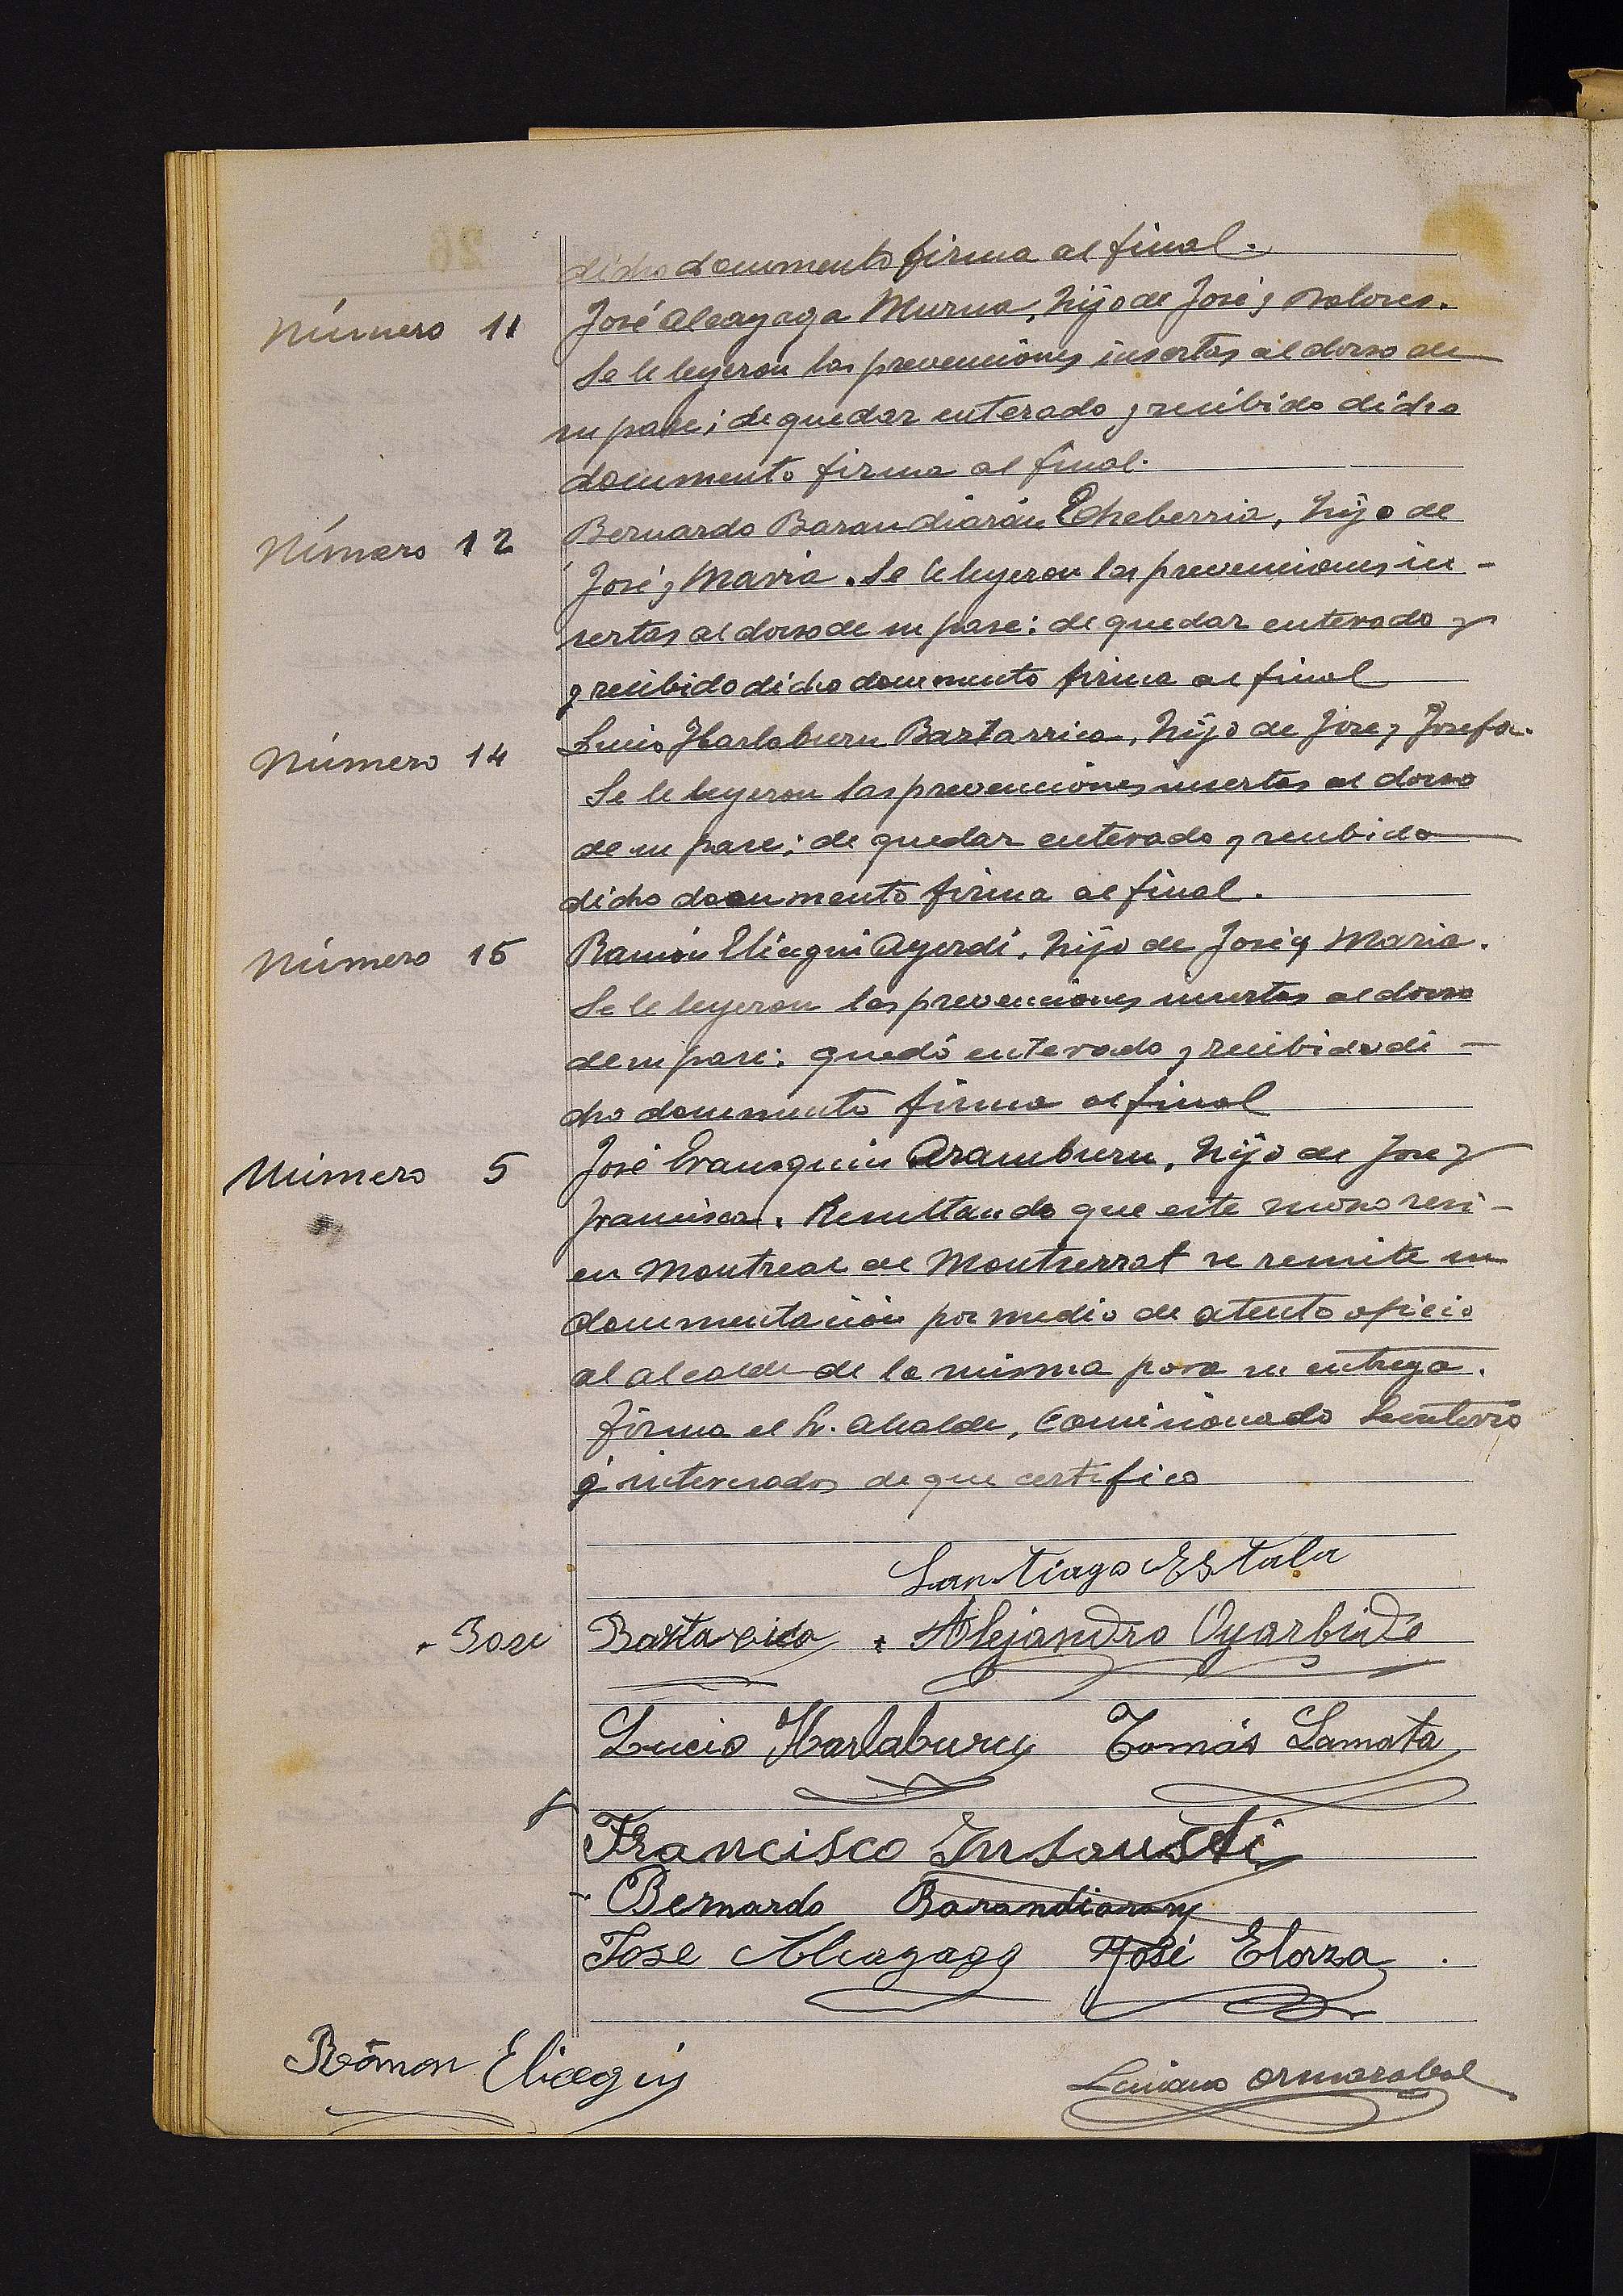 dicho documento firma al final.
Número 11 José Alcayaga Murua, hijo de José y Dolores.
Se le leyeron las prevenciones insertas al dorso de
su pase; de quedar enterado y recibido dicho
documento firma al final.
Número 12 Bernardo Barandiarán Echeberria, hijo de
José y Maria. Se le leyeron las prevenciones in-
sertas al dorso de su pase: de quedar enterado y
y recibido dicho documento firma al final
Número 14 Lucio Harlaburu Baztarrica, hijo de Jose y Josefa.
Se le leyeron las prevenciones insertas al dorso
de su pase; de quedar enterado y recibido
dicho documento firma al final.
Número 15 Ramón Eliegui Ayerdi, hijo de José y Maria.
Se le leyeron las prevenciones insertas al dorso
de su pase: quedó enterado y recibido di-
cho documento firma al final
Número 5 José Aramburu, hijo de Jose y
Francisca. Resultando que este mozo resi-
en Montreal de Montserrat se remite su
documentación por medio de atento oficio
al alcalde de la misma para su entrega.
Firma el Sr. Alcalde, Comisionado Secretario
é interesados de que certifico
Santiago
Jose Baztarrica Alejandro Oyarbide
Lucio Harlaburu Tomás Lamata
Francisco Insausti
Bernardo Barandiaran
Jose Alcayaga José Elorza
Ramon Eliegui Luciano Ormazabal